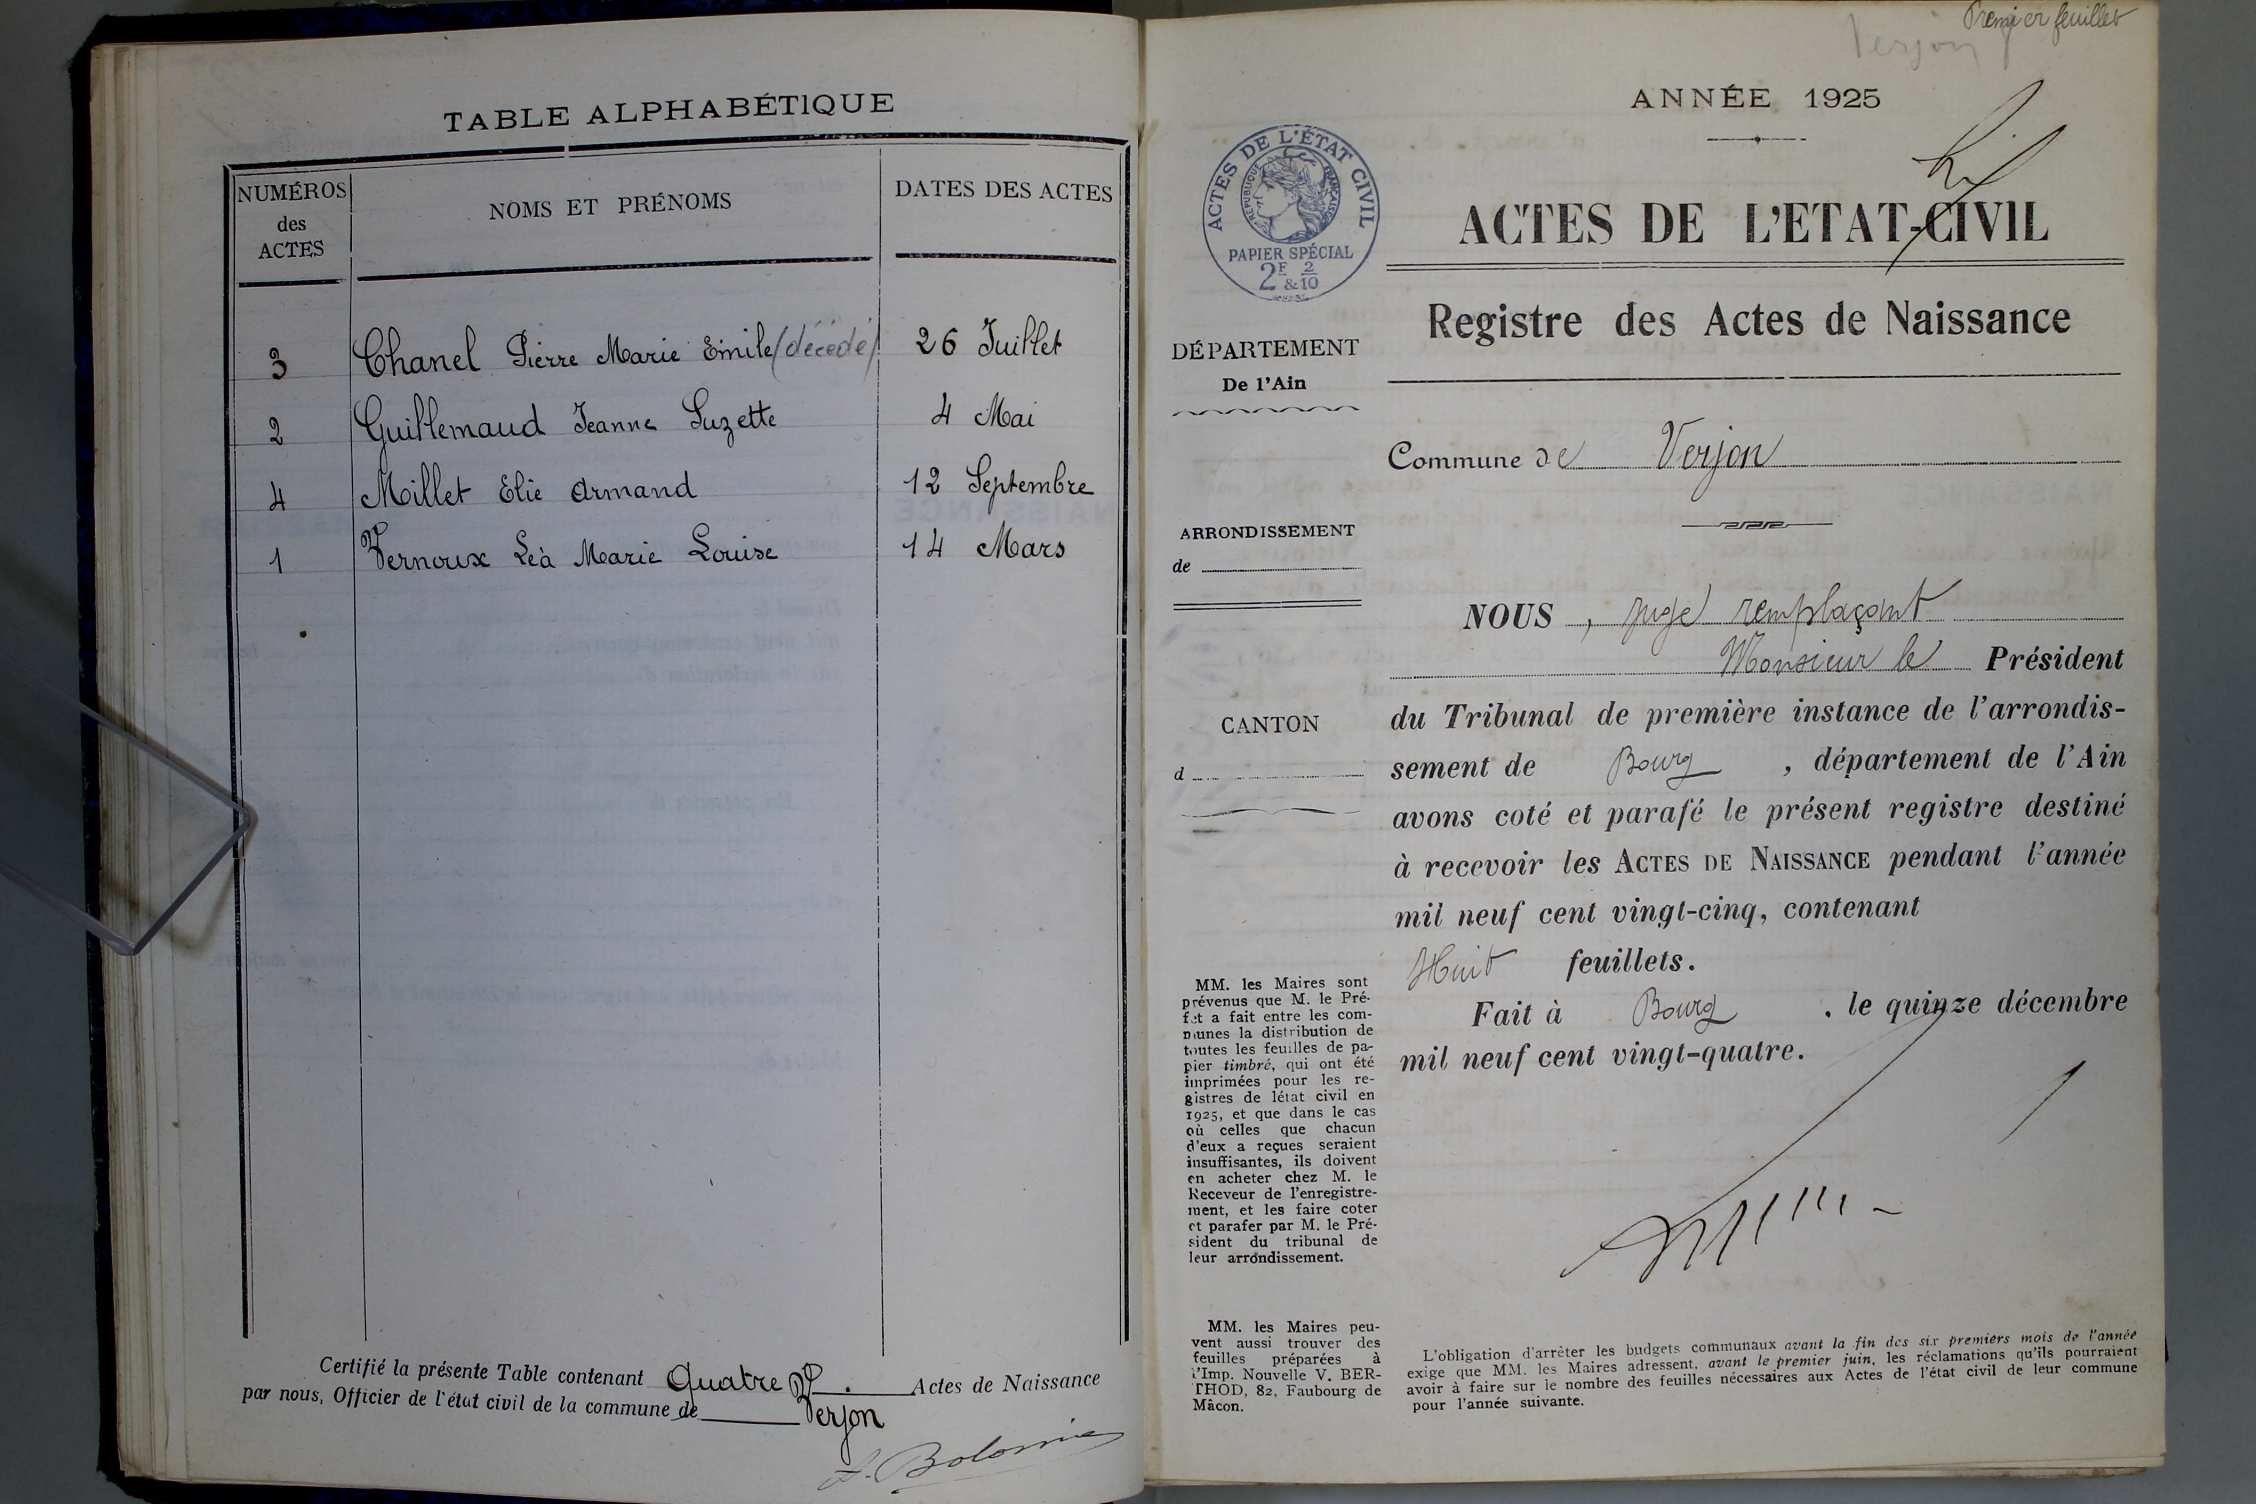 TABLE ALPHABÉTIQUE
NUMÉROS
des
ACTES
NOMS ET PRÉNOMS
DATES DES ACTES
3 Chanel Pierre Marie Emile (décédé) 26 Juillet
2 Guillemaud Jeanne Suzette 4 Mai
4 Millet Elie Armand 12 Septembre
1 Vernoux Léa Marie Louise 14 Mars
Certifié la présente Table contenant Quatre Actes de Naissance
par nous, Officier de l'état civil de la commune de Verjon
Premier feuillet
Verjon
ANNÉE 1925
ACTES DE L'ÉTAT CIVIL
RÉPUBLIQUE FRANÇAISE
PAPIER SPÉCIAL
2F & 2/10
ACTES DE L'ETAT-CIVIL
Registre des Actes de Naissance
DÉPARTEMENT
De l'Ain
Commune de Verjon
ARRONDISSEMENT
de
CANTON
d
NOUS, juge remplaçant
Monsieur le Président
du Tribunal de première instance de l'arrondis-
sement de Bourg, département de l'Ain
avons coté et parafé le présent registre destiné
à recevoir les ACTES DE NAISSANCE pendant l'année
mil neuf cent vingt-cinq, contenant
Huit feuillets.
Fait à Bourg, le quinze décembre
mil neuf cent vingt-quatre.
MM. les Maires sont
prévenus que M. le Pré-
fet a fait entre les com-
munes la distribution de
toutes les feuilles de pa-
pier timbré, qui ont été
imprimées pour les re-
gistres de létat civil en
1925, et que dans le cas
où celles que chacun
d'eux a reçues seraient
insuffisantes, ils doivent
en acheter chez M. le
Receveur de l'enregistre-
ment, et les faire coter
et parafer par M. le Pré-
sident du tribunal de
leur arrondissement.
MM. les Maires peu-
vent aussi trouver des
feuilles préparées à
l'Imp. Nouvelle V. BER-
THOD, 82, Faubourg de
Mâcon.
L'obligation d'arrêter les budgets communaux avant la fin des six premiers mois de l'année
exige que MM. les Maires adressent, avant le premier juin, les réclamations qu'ils pourraient
avoir à faire sur le nombre des feuilles nécessaires aux Actes de l'état civil de leur commune
pour l'année suivante.